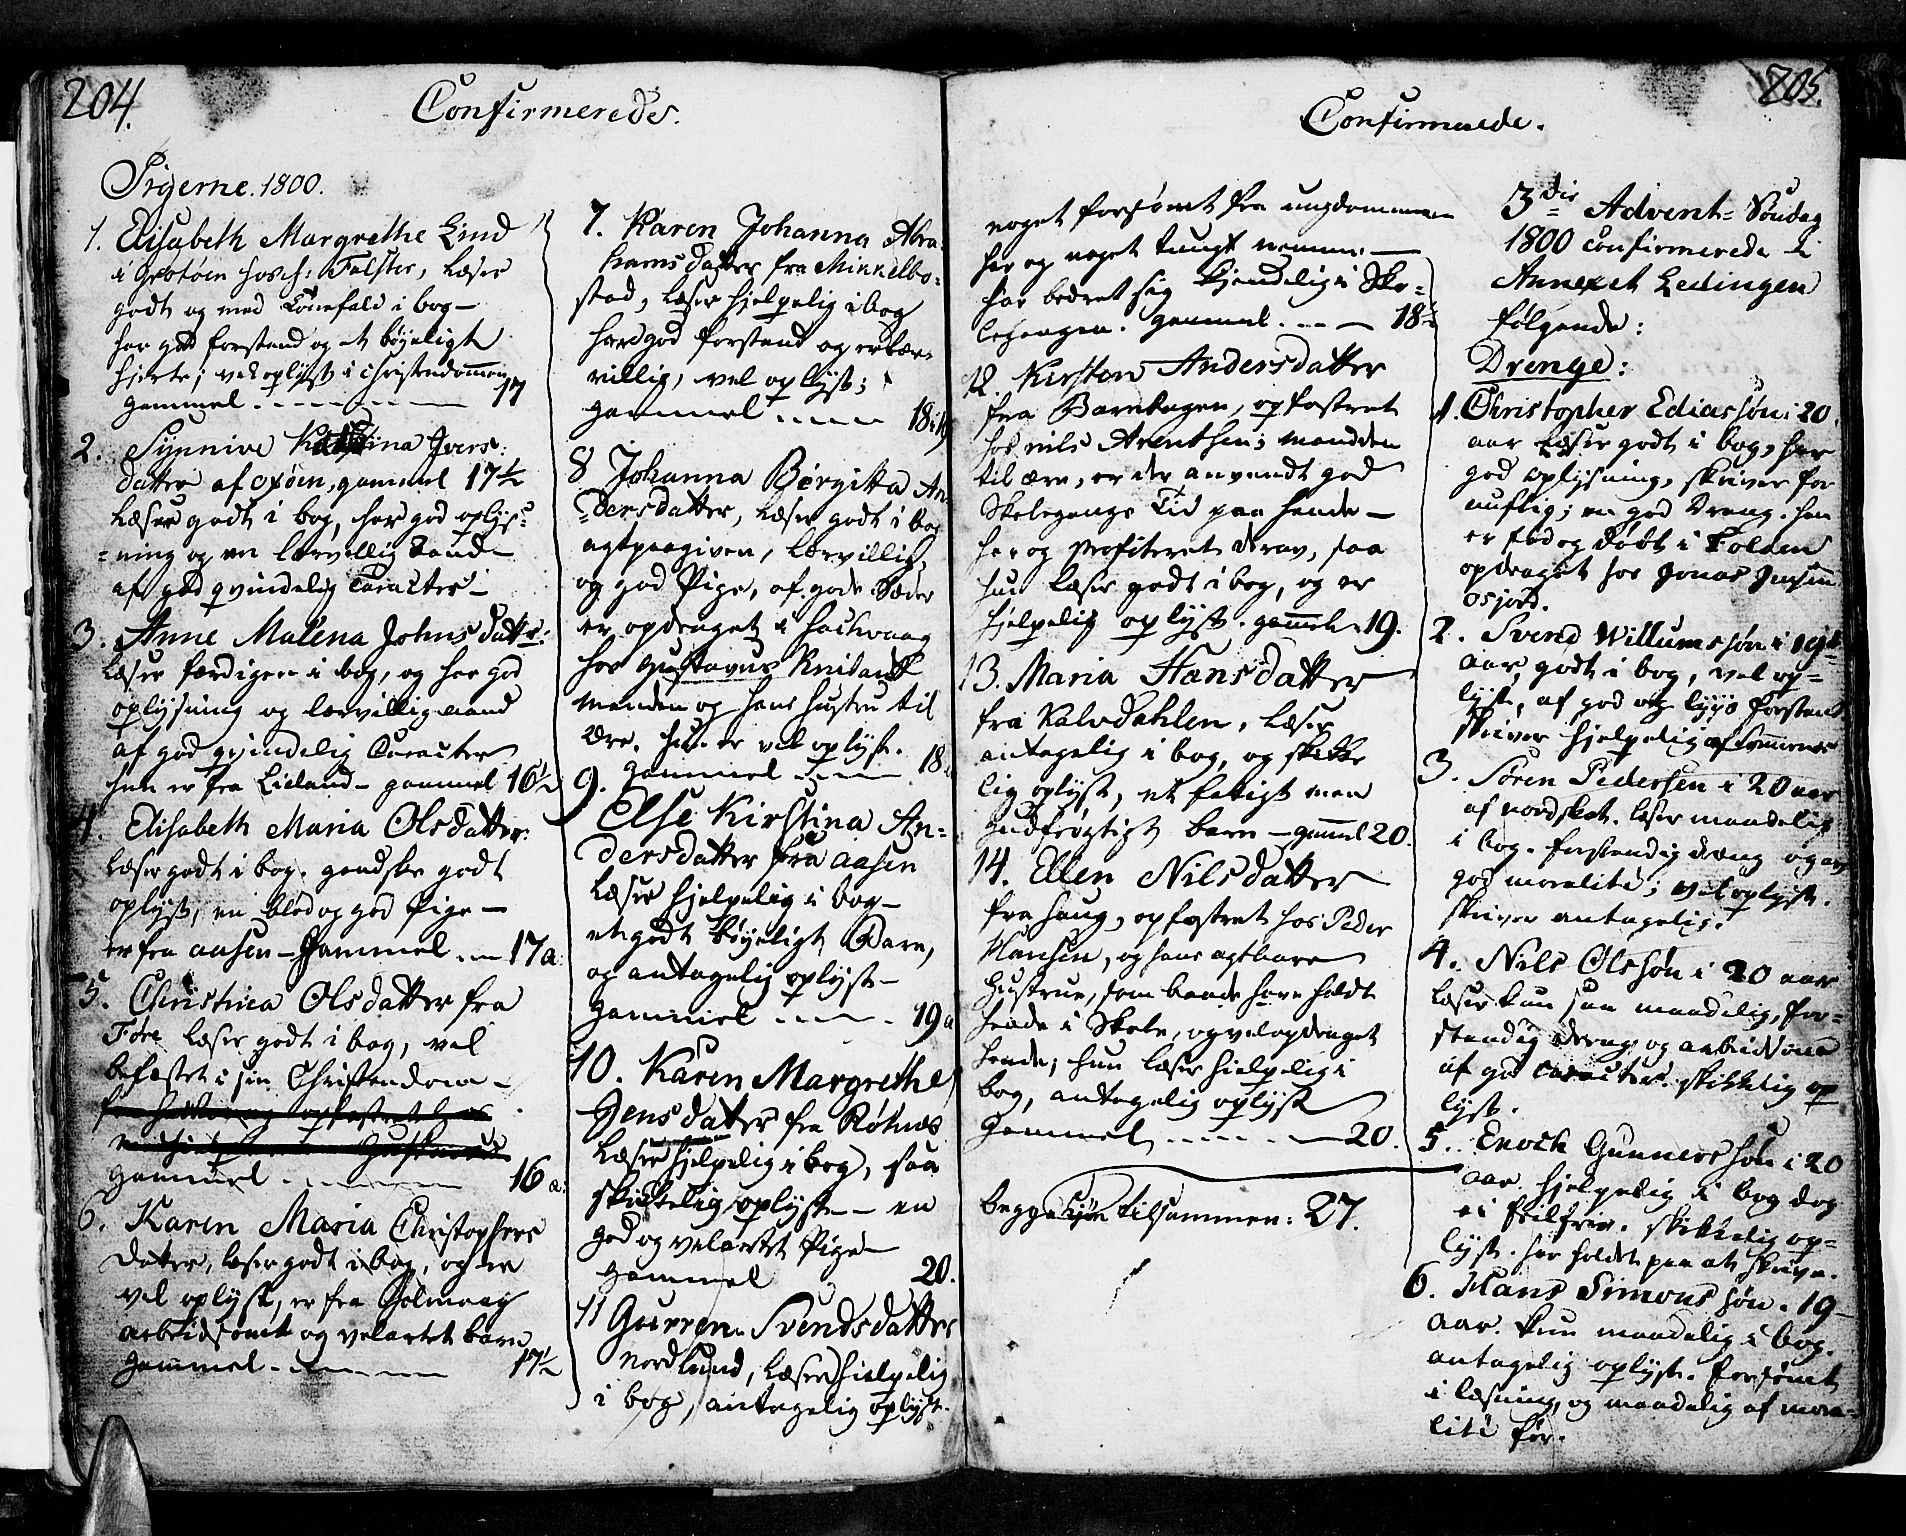 204.
Confirmerede.
Pigerne. 1800.
1. Elisabeth Margrethe Lind
i Grøtøen hos H: Falster, læser
godt og med Tonefald i bog –
har god forstand og et bøyeligt
hjerte; vel oplyst i Christendommen
gammel – – – – – 17
2. Synnive Ivers:
datter af oxøen, gammel 17½
læser godt i bog, har god oplys-
-ning og en lærvillig Aand
af god qvindelig Caracter –
3. Anne Malena Johnsdatter:
læser færdigen i bog, og har god
oplysning og lærvillig aand
af god qvindelig Caracter
hun er fra Lieland – gammel 16½
4. Elisabeth Maria Olsdatter:
læser godt i bog. gandske godt
oplyst; en blød og god Pige –
er fra aasen – Gammel – 17 a
5. Christina Olsdatter fra
Føre læser godt i bog, vel
befæstet i sin Christendom –
gammel – – – – – 16 a:
6. Karen Maria Christophers
datter, læser godt i bog, og er
vel oplyst, er fra
arbeidsomt og velartet barn
gammel – – – – – 17½
7. Karen Johanna Abra-
hamsdatter fra Minnelbo-
stad, læser hjelpelig i bog
har god forstand og er lær-
villig, vel oplyst;
gammel – – – – 18
8 Johanna Børgitta An
-dersdatter, læser godt i bog
agtpaagiven, lærvillig,
og god Pige, af gode Sæder
er opdraget i
hos Gustavus
manden og hans Hustru til
ære. hun er vel oplyst.
gammel – – – 18
9.
Else Kirstina An-
dersdatter fra aasen
læser hjelpelig i bog –
et godt bøyeligt Barn,
og antagelig oplyst –
gammel – – – – 19 a
10. Karen Margrethe
Jensdatter fra Røtnes
læser hjelpelig i bog, saa
skikkelig oplyst – en
god og velartet Pige –
gammel 20.
11 Gurren Svendsdatter
Nordlund, læser hjelpelig
i bog, antagelig oplyst.
205.
Confirmerede.
noget forsømt fra ungdommen
har og noget tungt nemme –
har bedret sig kjendelig i Sko-
legangen. gammel – – – 18
12. Kirsten Andersdatter
fra opfostret
hos Nils Arentsen; manden
til ære, er der anvendt god
Skolegangs Tid paa hende –
har og profiteret derav, saa
hun læser godt i bog, og er
hjelpelig oplyst. gammel 19.
13. Maria Hansdatter
fra Kalvdahlen, læser
antagelig i bog, og skikke
lig oplyst, et fatigt men
gudfrøgtigt barn – gammel 20.
14. Ellen Nilsdatter
fra Haug, opfostret hos Peder
Hansen, og hans agtbare
Hustrue, som baade have holdt
hende i Skole, og vel opdraget
hende; hun læser hielpelig i
bog, antagelig oplyst
Gammel – – – – – 20.
begge kjøn tilsammen: 27.
3die Advent-Søndag
1800 confirmerede i
Annexet Ledingen
følgende:
Drenge:
1. Christopher Ediassøn i 20
aar læser godt i bog, har
god oplysning, skriver for
nuftig; en god Dreng. han
er fød og døbt i Folden
opdraget hos Jonas Jensen
Osjord.
2. Svend Willumssøn i 19de
aar, godt i bog, vel op-
lyst, af god og lyys forstand
skriver hjelpelig
3. Sören Pedersen i 20 aar
af Nordskot. læser maadelig
i bog. forstandig dreng og av
god moralitè; vel oplyst.
skriver antagelig.
4. Nils Olssøn i 20 aar
læser kun saa maadelig, for-
standig dreng og arbeidsom
af god Caracter. skikkelig op
lyst.
5. Enoch Gunnerssøn i 20
aar. hjelpelig i bog dog
ei feilfrie. skikkelig op-
lyst. har holdet paa at skrive.
6. Hans Simonssøn. 19
aar. kun maadelig i bog.
antagelig oplyst. forsømt
i læsning, og maadelig af mora-
litè før.